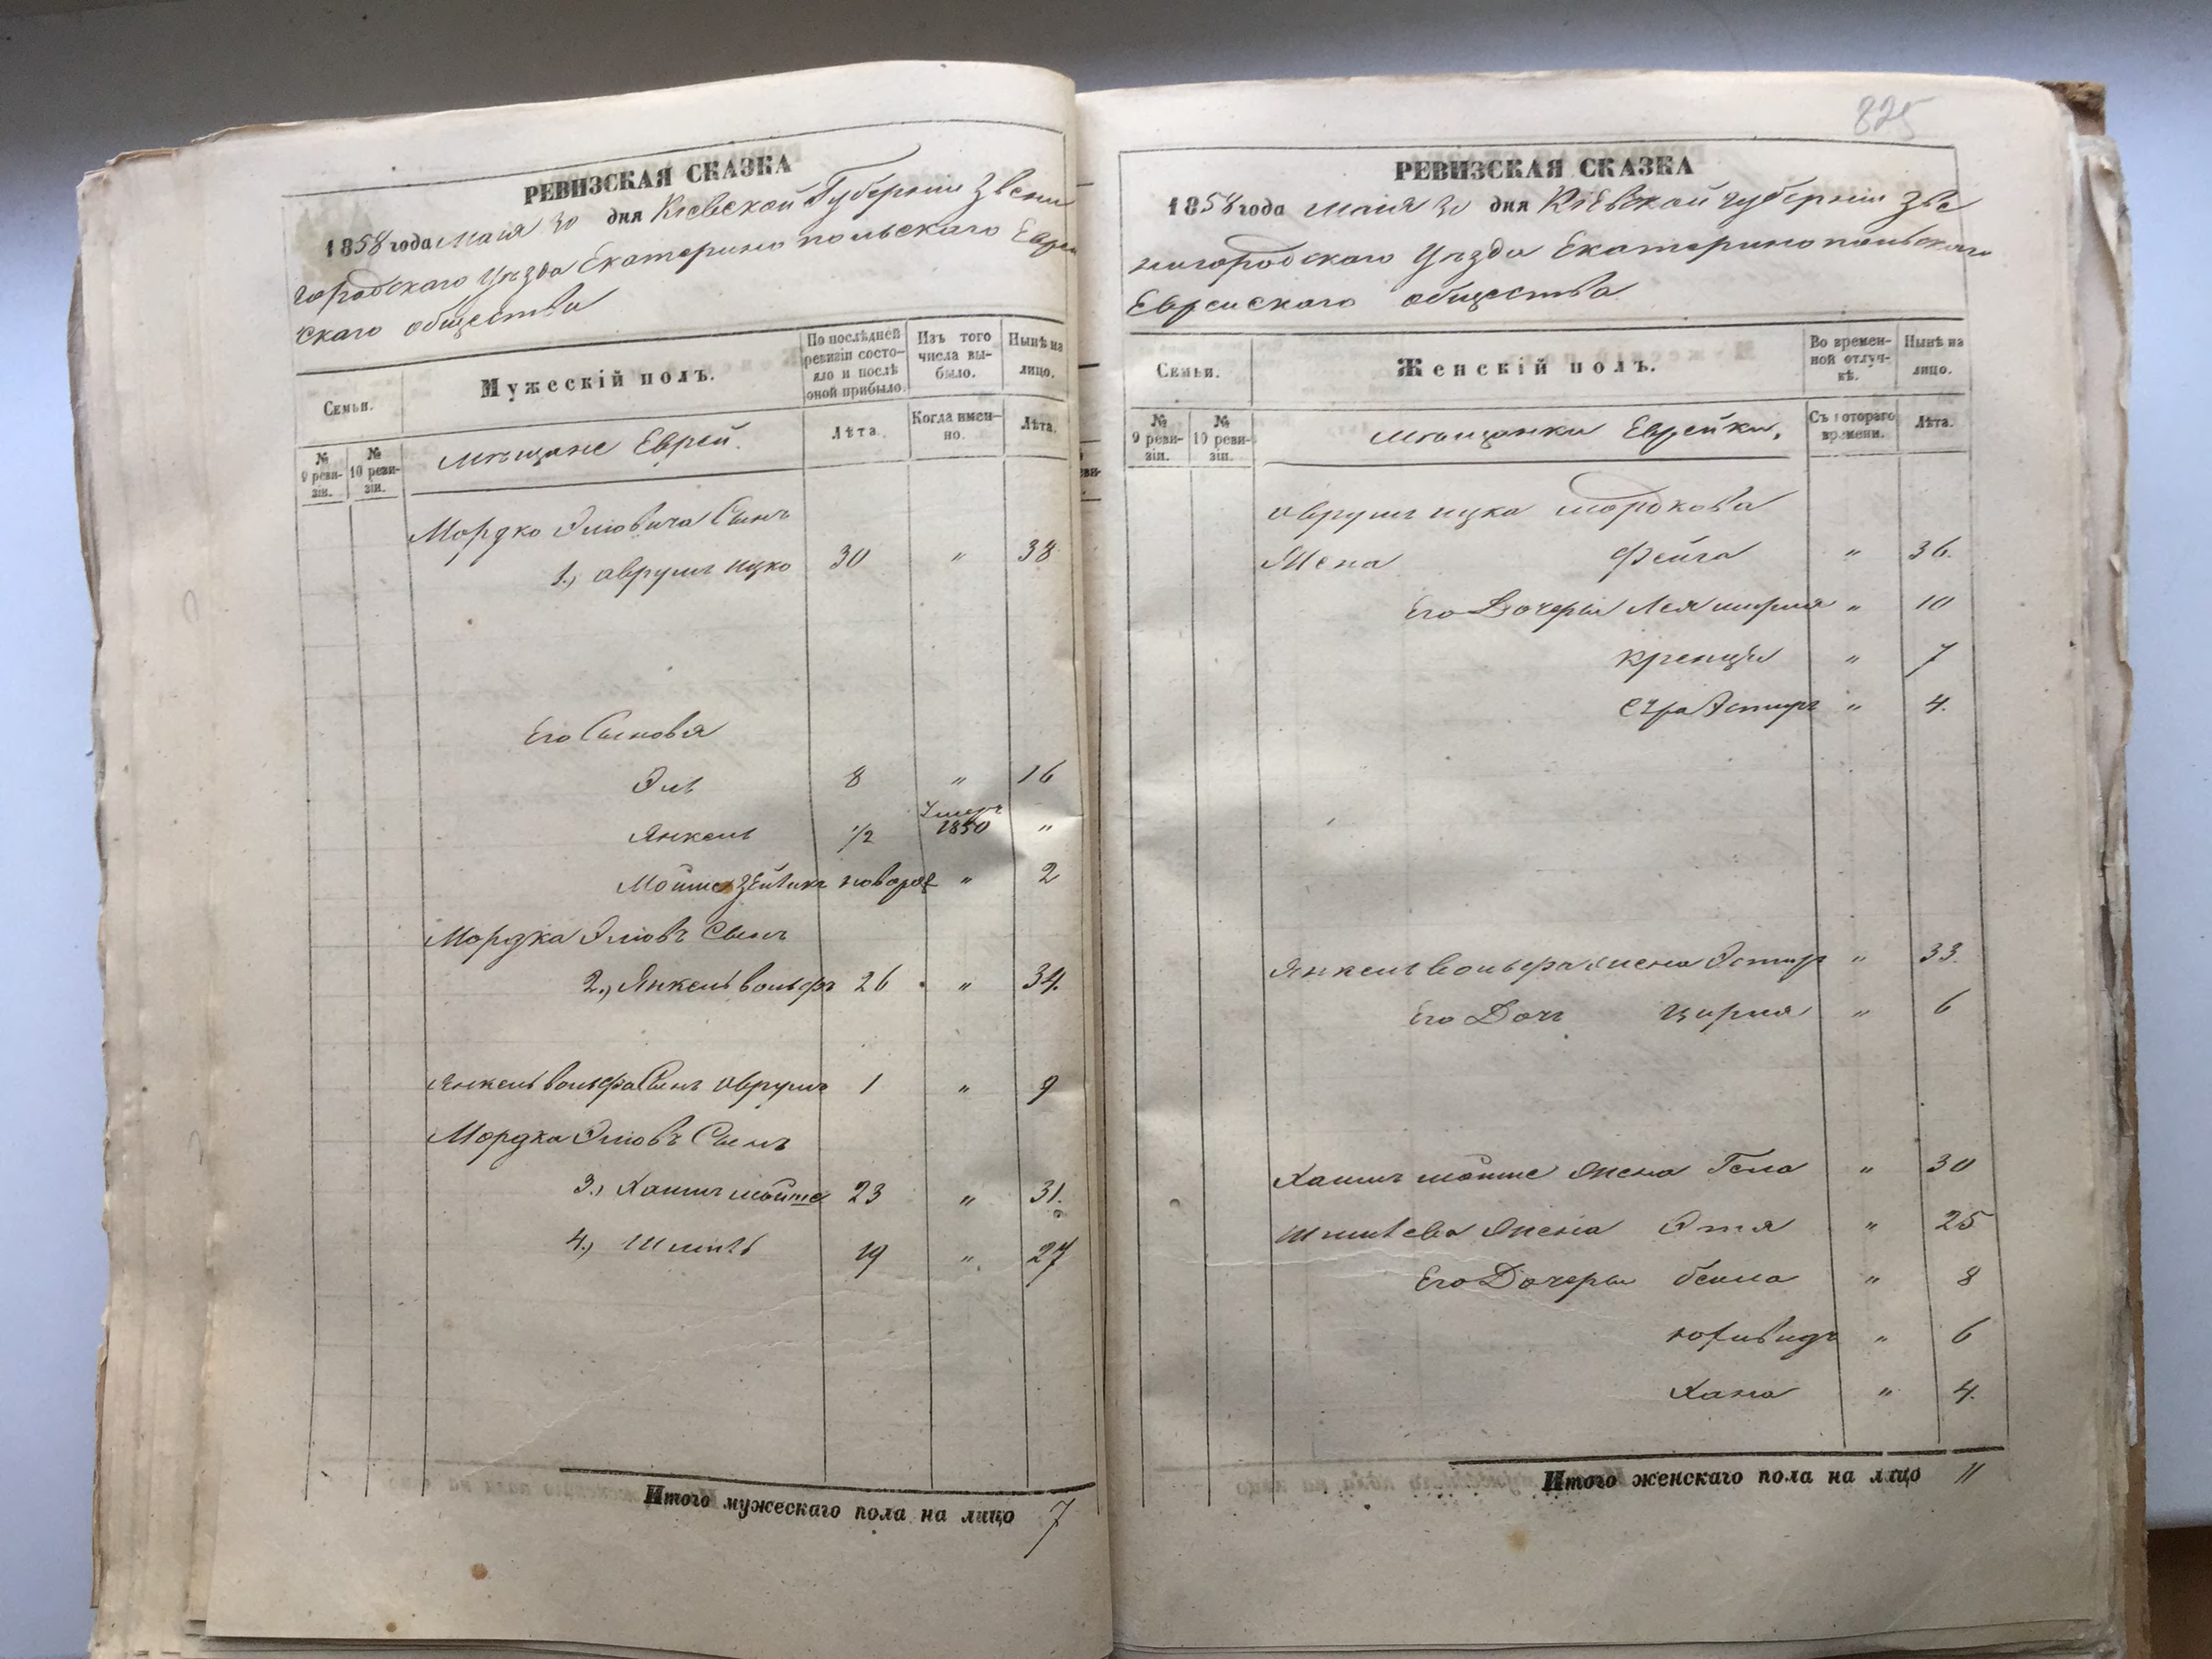 РЕВИЗСКАЯ СКАЗКА
1858 года Маія 30 дня Кіевской Губерніи Звени
городского Уѣзда Екатеринопольского Еврей
ского общества
Семьи.
Мужескій полъ.
По послѣдней ревизіи состо-яло и послѣ оной прибыло.
Изъ того числа вы-было.
Нынѣ на лицо.
№ 9 реви-зіи.
№ 10 реви-зіи.
Мѣщане Еврей.
Лѣта.
Когда имен-но.
Лѣта.
Мордко Эліовича Сынъ
1., аврумъ ицко 30 " 38
Его Сыновя
Эль 8 " 16
Янкель 1/2 Умеръ 1850 "
Мойше новорож " 2
Мордка Эліовъ Сынъ
2., Янкель вольфъ 26 " 34.
Янкель вольфа Сынъ аврумъ 1 " 9
Мордка Эліовъ Сынъ
3., Хаимъ мойше 23 " 31.
4., 19 " 27
Итого мужескаго пола на лицо 7
825
РЕВИЗСКАЯ СКАЗКА
1858 года Маія 30 дня Кіевской губерніи Зве
нигородского Уѣзда Екатеринопольского
Еврейского общества
Семьи.
Женскій полъ.
Во времен-ной отлуч-кѣ.
Нынѣ на лицо.
№ 9 реви-зіи.
№ 10 реви-зіи.
Мѣщанки Еврейки,
Съ котораго времени.
Лѣта.
аврумъ ицка мордкова
Жена Фейга " 36.
Его Дочеры Лея " 10
кренця " 7
Эстиръ " 4.
Янкель вольфа жена Эстиръ " 33.
Его Дочь цирля " 6
Хаимъ мойше Жена Гела " 30
Жена Этя " 25
Его Дочеры бейла " 8
" 6
Хана " 4.
Итого женскаго пола на лицо 11